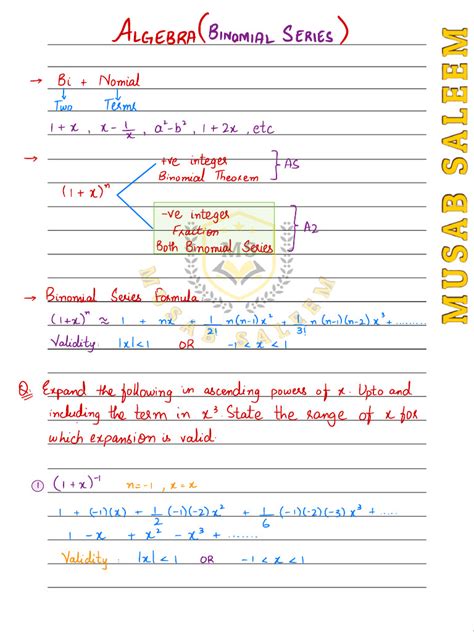 ALGEBRA (BINOMIAL SERIES)
MUSAB SALEEM
→ Bi + Nomial
↓ ↓
Two Terms
1 + x , x - 1/x , a² - b² , 1 + 2x , etc
→ +ve integer
Binomial Theorem } AS
(1 + x)ⁿ
-ve integer
Fraction
Both Binomial Series } A2
MS
MUSAB SALEEM
→ Binomial Series Formula
(1+x)ⁿ ≈ 1 + nx + 1/2! n(n-1)x² + 1/3! n(n-1)(n-2)x³ + ........
Validity: |x| < 1 OR -1 < x < 1
Q. Expand the following in ascending powers of x. Upto and
including the term in x³. State the range of x for
which expansion is valid.
① (1+x)⁻¹ n = -1 , x = x
1 + (-1)(x) + 1/2 (-1)(-2)x² + 1/6 (-1)(-2)(-3)x³ + ....
1 - x + x² - x³ + .......
Validity: |x| < 1 OR -1 < x < 1